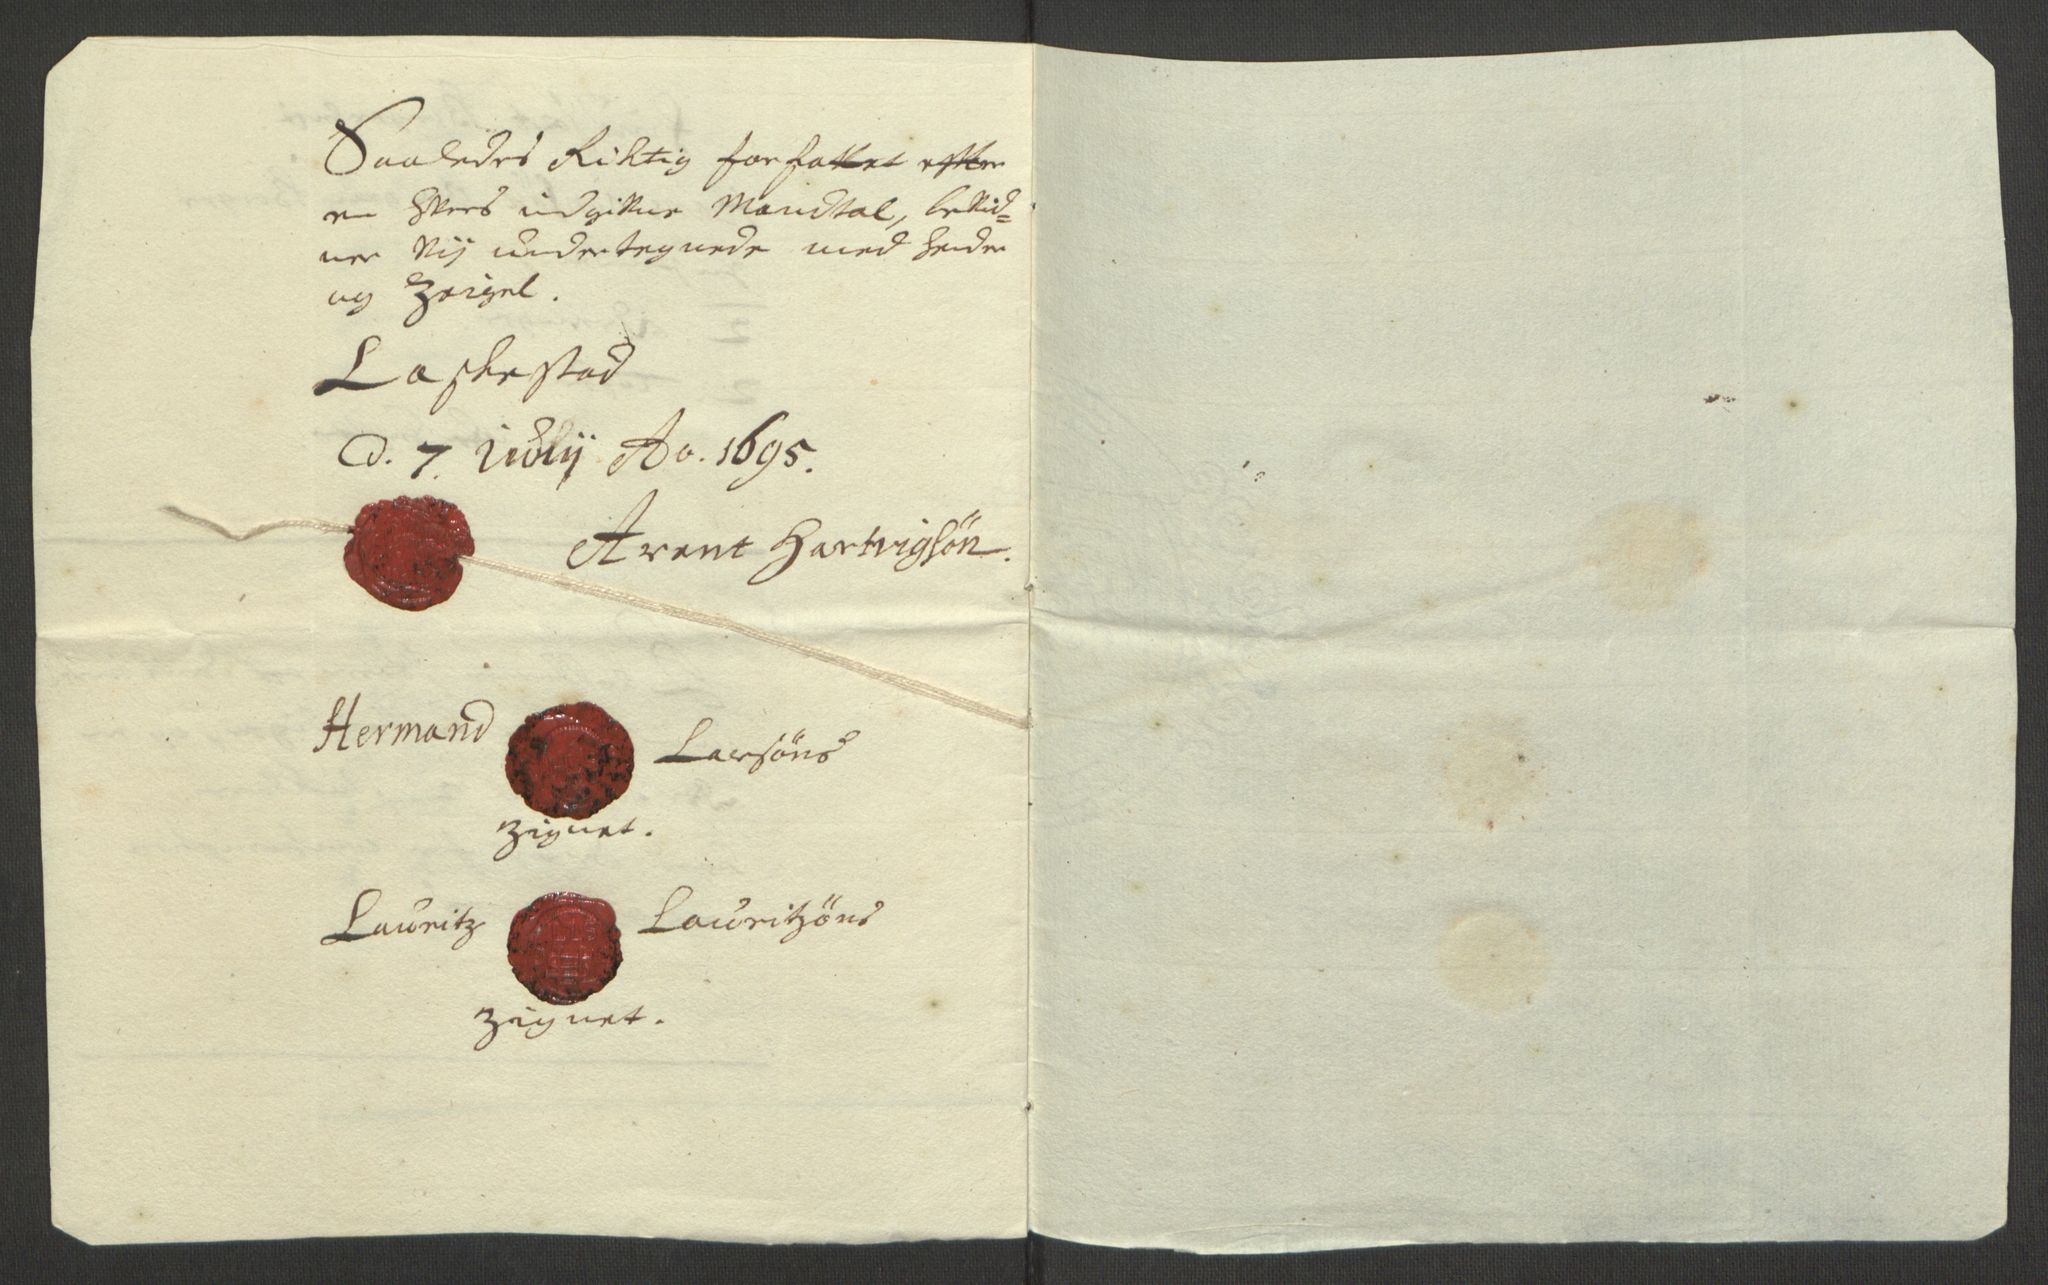 Saaledes Richtig forfattet efter
en hvers udgifne Mandtal, bekid=
ner Vij undertegnede med hender
og Zeigel.
Laskestad
D. 7. Julij Ao. 1695.
Arent Hartvigsön.
Hermand Larsöns
Zignet.
Lauritz Lauritzöns
Zignet.